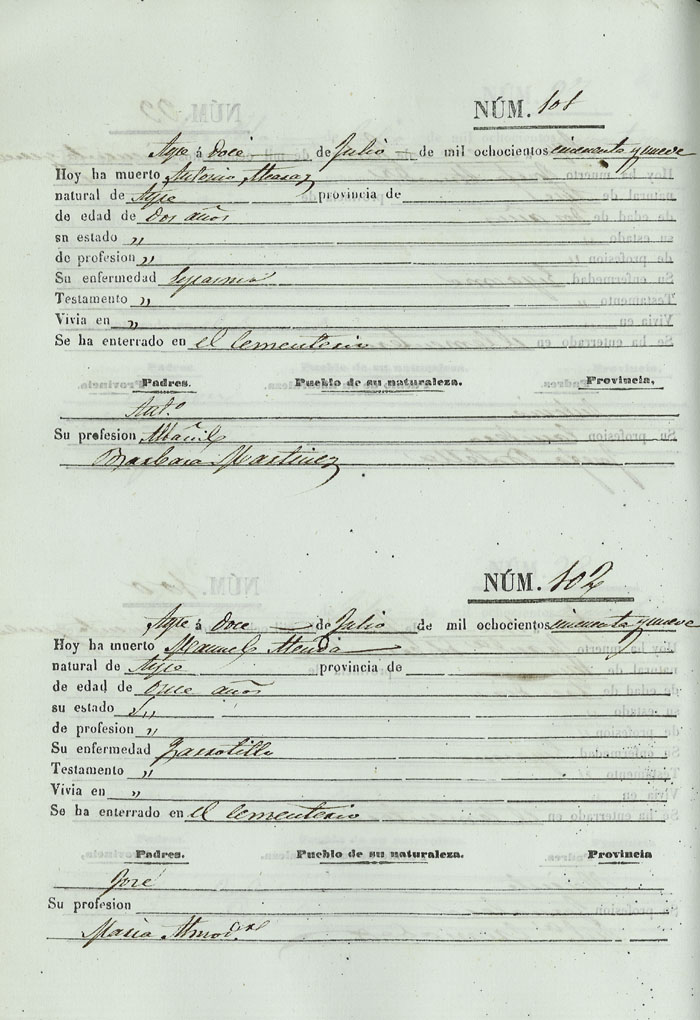 NÚM. 101
Aspe á doce de Julio de mil ochocientos cincuenta y nueve
Hoy ha muerto Antonio Alcaraz
natural de Aspe provincia de
de edad de dos años
sn estado "
de profesion "
Su enfermedad Espasmo
Testamento "
Vivia en "
Se ha enterrado en el Cementerio
Padres. Pueblo de su naturaleza. Provincia,
Ant.º
Su profesion Albañil
Barbara Martinez
NÚM. 102
Aspe á doce de Julio de mil ochocientos cincuenta y nueve
Hoy ha muerto Manuel
natural de Aspe provincia de
de edad de once años
su estado S. "
de profesion "
Su enfermedad Garrotillo
Testamento "
Vivia en "
Se ha enterrado en el Cementerio
Padres. Pueblo de su naturaleza. Provincia
José
Su profesion
Maria